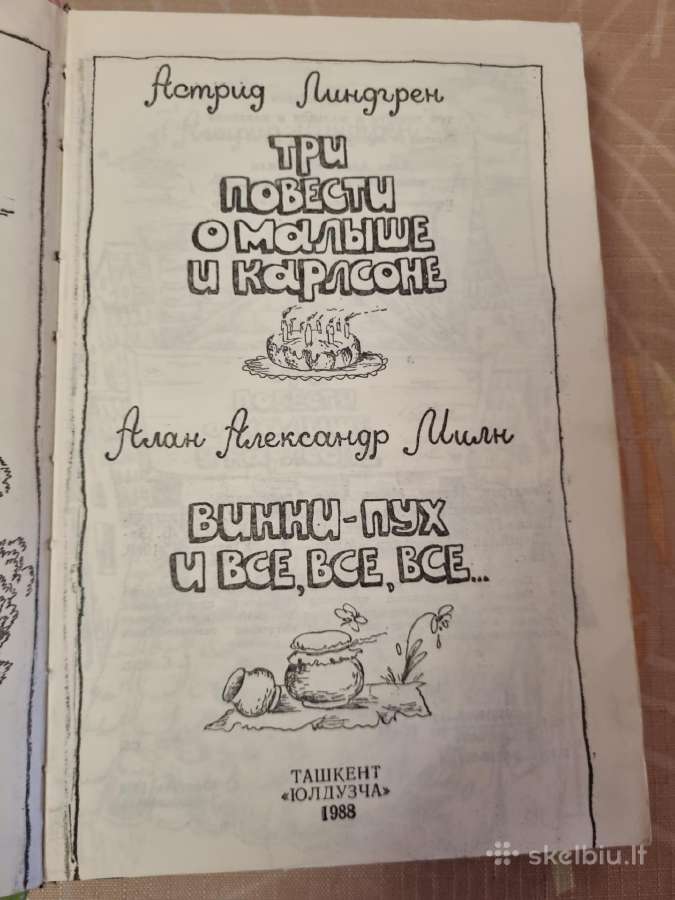 Астрид Линдгрен
ТРИ
ПОВЕСТИ
О МАЛЫШЕ
И КАРЛСОНЕ
Алан Александр Милн
ВИННИ-ПУХ
И ВСЕ, ВСЕ, ВСЕ...
ТАШКЕНТ
«ЮЛДУЗЧА»
1988
skelbiu.lt